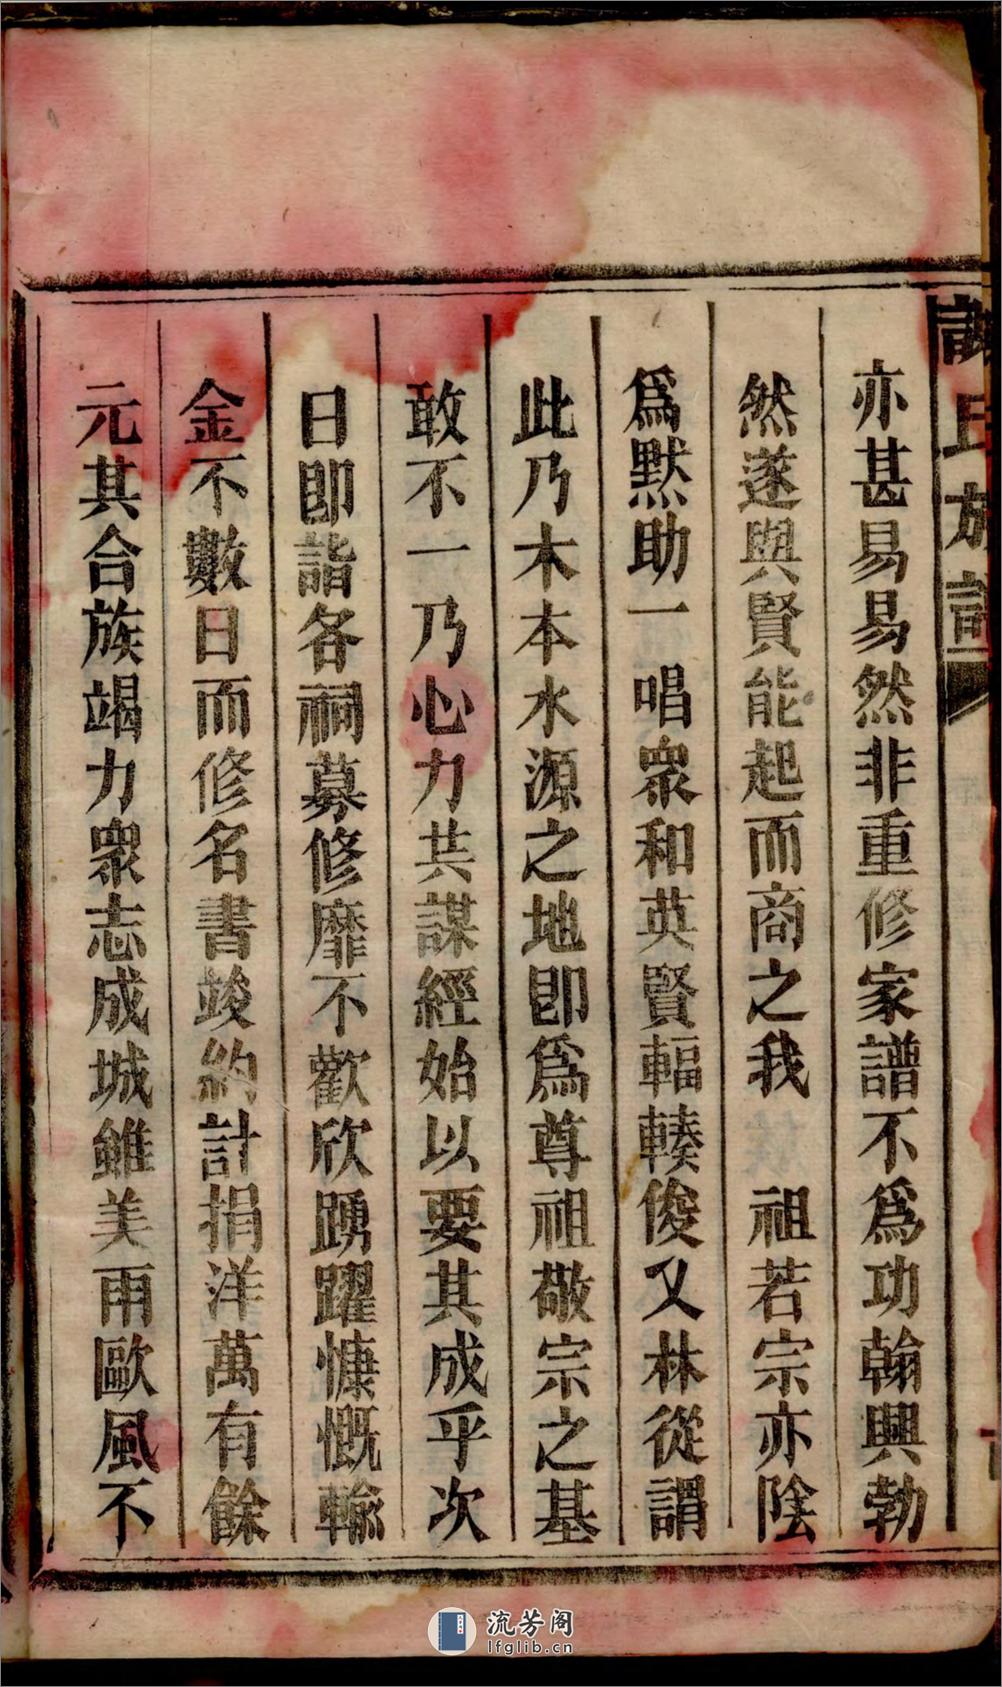 氏族譜
亦甚易易然非重修家譜不爲功翰興勃
然遂與賢能起而商之我 祖若宗亦陰
爲默助一唱衆和英賢輻輳俊又林從謂
此乃木本水源之地即爲尊祖敬宗之基
敢不一乃心力共謀經始以要其成乎次
日即詣各祠募修靡不歡欣踴躍慷慨輸
金不數日而修名書竣約計捐洋萬有餘
元其合族竭力衆志成城雖美雨歐風不
流芳阁
lfglib.cn